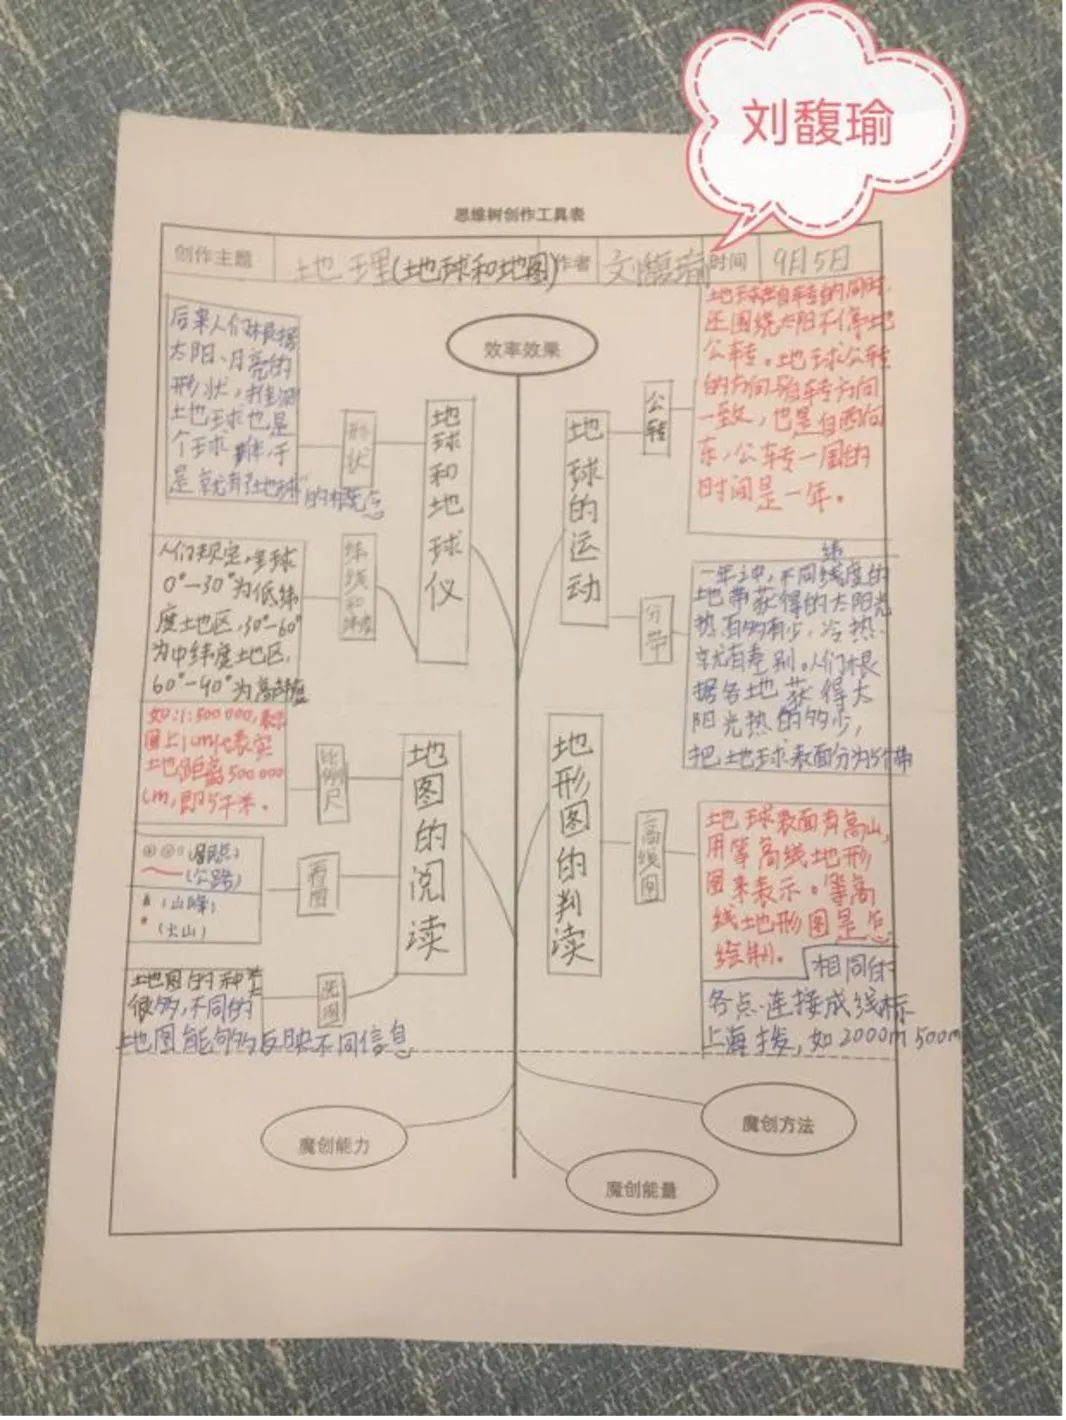 刘馥瑜
思维树创作工具表
创作主题
地理(地球和地图)
作者
刘馥瑜
时间
9月5日
效率效果
地球和地球仪
形状
后来人们根据
太阳、月亮的
形状,推测
地球也是
个球
于
是就有了"地球"的概念
纬线和纬度
人们规定,
0°—30°为低纬
度地区,30°—60°
为中纬度地区,
60°—90°为高纬度
地图的阅读
比例尺
如:1:500000,表示
图上1cm代表实
地距离500000
cm,即5千米。
看图
(公路)
(山峰)
(火山)
选图
地图的种类
很多,不同的
地图能够反映不同信息
地球的运动
公转
地球在自转的同时,
还围绕太阳不停地
公转。地球公转
的方向与自转方向
一致,也是自西向
东,公转一周的
时间是一年。
分带
纬
一年之中,不同线度的
地带获得的太阳光
热有多有少,冷热
就有差别。人们根
据各地获得太
阳光热的多少,
把地球表面分为5个带
地形图的判读
高线图
地球表面有高山,
用等高线地形
图来表示。等高
线地形图是怎
绘制。
相同的
各点连接成线标
上海拨,如2000m 500m
魔创能力
魔创方法
魔创能量